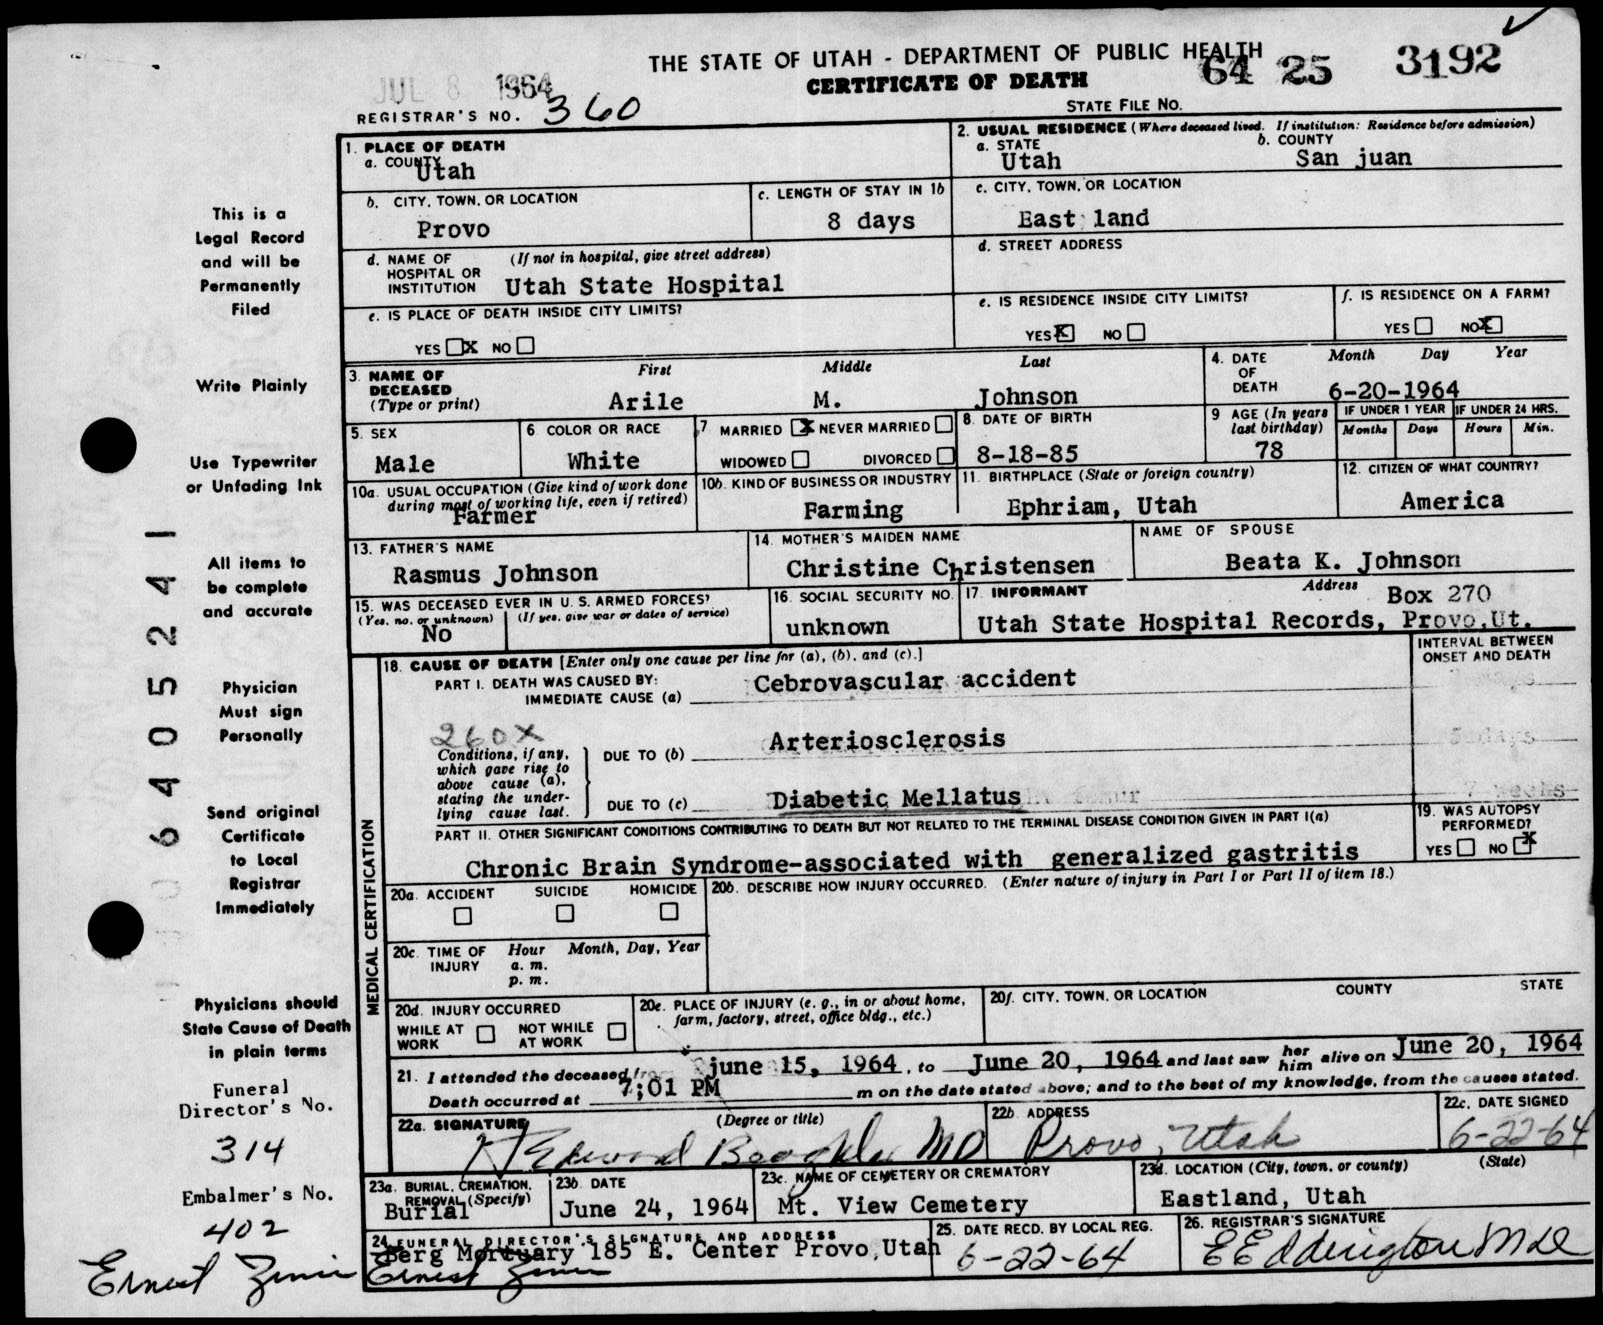 THE STATE OF UTAH - DEPARTMENT OF PUBLIC HEALTH
CERTIFICATE OF DEATH
64 25 3192
STATE FILE NO.
JUL 8 1964
REGISTRAR'S NO. 360
1. PLACE OF DEATH
a. COUNTY
Utah
2. USUAL RESIDENCE (Where deceased lived. If institution: Residence before admission)
a. STATE
Utah
b. COUNTY
San juan
b. CITY, TOWN, OR LOCATION
Provo
c. LENGTH OF STAY IN 1b
8 days
c. CITY, TOWN, OR LOCATION
East land
d. NAME OF HOSPITAL OR INSTITUTION (If not in hospital, give street address)
Utah State Hospital
d. STREET ADDRESS
e. IS PLACE OF DEATH INSIDE CITY LIMITS?
YES X NO
e. IS RESIDENCE INSIDE CITY LIMITS?
YES X NO
f. IS RESIDENCE ON A FARM?
YES NO X
3. NAME OF DECEASED (Type or print)
First Middle Last
Arile M. Johnson
4. DATE OF DEATH
Month Day Year
6-20-1964
5. SEX
Male
6 COLOR OR RACE
White
7 MARRIED X NEVER MARRIED
WIDOWED DIVORCED
8. DATE OF BIRTH
8-18-85
9 AGE (In years last birthday)
78
IF UNDER 1 YEAR IF UNDER 24 HRS.
Months Days Hours Min.
10a. USUAL OCCUPATION (Give kind of work done during most of working life, even if retired)
Farmer
10b. KIND OF BUSINESS OR INDUSTRY
Farming
11. BIRTHPLACE (State or foreign country)
Ephriam, Utah
12. CITIZEN OF WHAT COUNTRY?
America
13. FATHER'S NAME
Rasmus Johnson
14. MOTHER'S MAIDEN NAME
Christine Christensen
NAME OF SPOUSE
Beata K. Johnson
15. WAS DECEASED EVER IN U. S. ARMED FORCES?
(Yes, no, or unknown) (If yes, give war or dates of service)
No
16. SOCIAL SECURITY NO.
unknown
17. INFORMANT Address Box 270
Utah State Hospital Records, Provo,Ut.
MEDICAL CERTIFICATION
18. CAUSE OF DEATH [Enter only one cause per line for (a), (b), and (c).]
INTERVAL BETWEEN ONSET AND DEATH
PART I. DEATH WAS CAUSED BY:
IMMEDIATE CAUSE (a) Cebrovascular accident
260X
Conditions, if any, which gave rise to above cause (a), stating the underlying cause last.
DUE TO (b) Arteriosclerosis
5 days
DUE TO (c) Diabetic Mellatus
7 weeks
PART II. OTHER SIGNIFICANT CONDITIONS CONTRIBUTING TO DEATH BUT NOT RELATED TO THE TERMINAL DISEASE CONDITION GIVEN IN PART I(a)
Chronic Brain Syndrome-associated with generalized gastritis
19. WAS AUTOPSY PERFORMED?
YES NO X
20a. ACCIDENT SUICIDE HOMICIDE
20b. DESCRIBE HOW INJURY OCCURRED. (Enter nature of injury in Part I or Part II of item 18.)
20c. TIME OF INJURY Hour Month, Day, Year
a. m.
p. m.
20d. INJURY OCCURRED
WHILE AT WORK NOT WHILE AT WORK
20e. PLACE OF INJURY (e. g., in or about home, farm, factory, street, office bldg., etc.)
20f. CITY, TOWN, OR LOCATION COUNTY STATE
21. I attended the deceased from june 15, 1964, to June 20, 1964 and last saw her him alive on June 20, 1964
Death occurred at 7;01 PM m on the date stated above; and to the best of my knowledge, from the causes stated.
22a. SIGNATURE (Degree or title)
Edward MD
22b. ADDRESS
Provo, Utah
22c. DATE SIGNED
6-22-64
23a. BURIAL, CREMATION, REMOVAL (Specify)
Burial
23b. DATE
June 24, 1964
23c. NAME OF CEMETERY OR CREMATORY
Mt. View Cemetery
23d. LOCATION (City, town, or county) (State)
Eastland, Utah
24. FUNERAL DIRECTOR'S SIGNATURE AND ADDRESS
Berg Mortuary 185 E. Center Provo,Utah
Ernest
25. DATE RECD. BY LOCAL REG.
6-22-64
26. REGISTRAR'S SIGNATURE
E E Eddington MD
This is a
Legal Record
and will be
Permanently
Filed
Write Plainly
Use Typewriter
or Unfading Ink
All items to
be complete
and accurate
Physician
Must sign
Personally
Send original
Certificate
to Local
Registrar
Immediately
Physicians should
State Cause of Death
in plain terms
Funeral
Director's No.
314
Embalmer's No.
402
Ernest